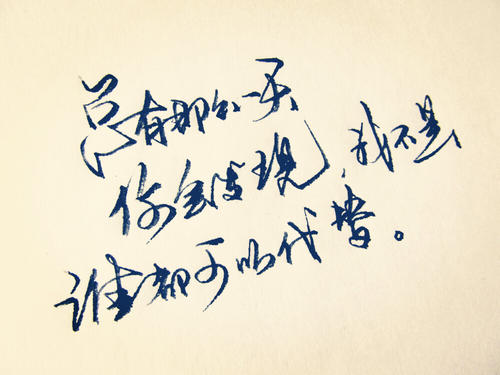 总有那么一天
你会发现,我不是
谁都可以代替。